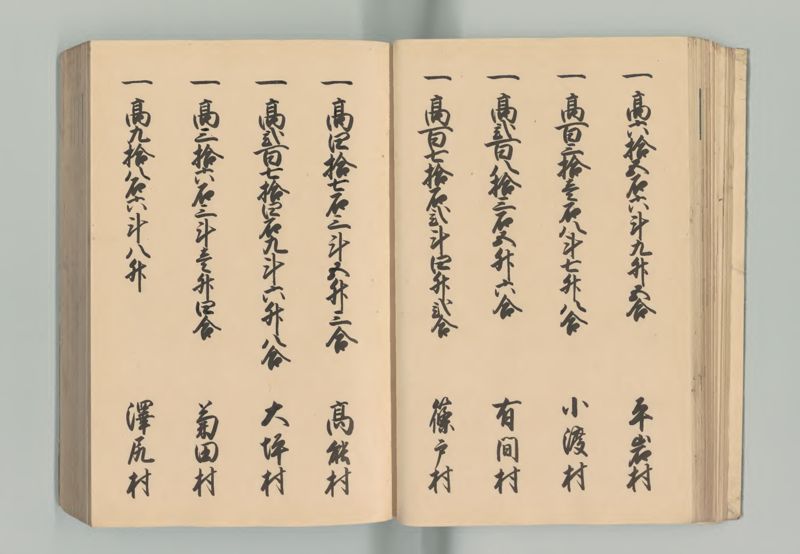 一 高六拾五石六斗九升五合 平岩村
一 高百三拾壱石八斗七升八合 小渡村
一 高弐百八拾三石五升六合 有間村
一 高百七拾石弐斗四升弐合 篠戸村
一 高四拾七石三斗五升三合 高熊村
一 高弐百七拾四石九斗六升八合 大坪村
一 高三拾六石三斗壱升四合 菊田村
一 高九拾八石六斗八升 澤尻村